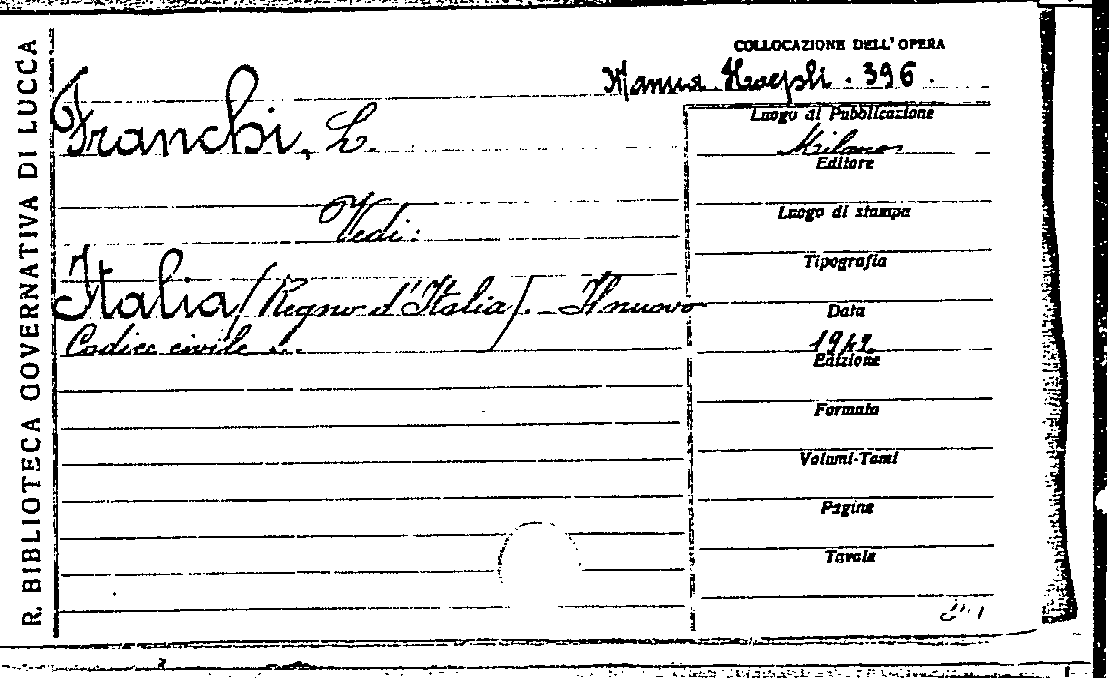 R. BIBLIOTECA GOVERNATIVA DI LUCCA
COLLOCAZIONE DELL'OPERA
Hoepli . 396 .
Franchi, L.
Vedi:
Italia (Regno d'Italia). - Il nuovo
Codice civile ...
Luogo di Pubblicazione
Milano
Editore
Luogo di stampa
Tipografia
Data
1942
Edizione
Formato
Volumi-Tomi
Pagine
Tavole